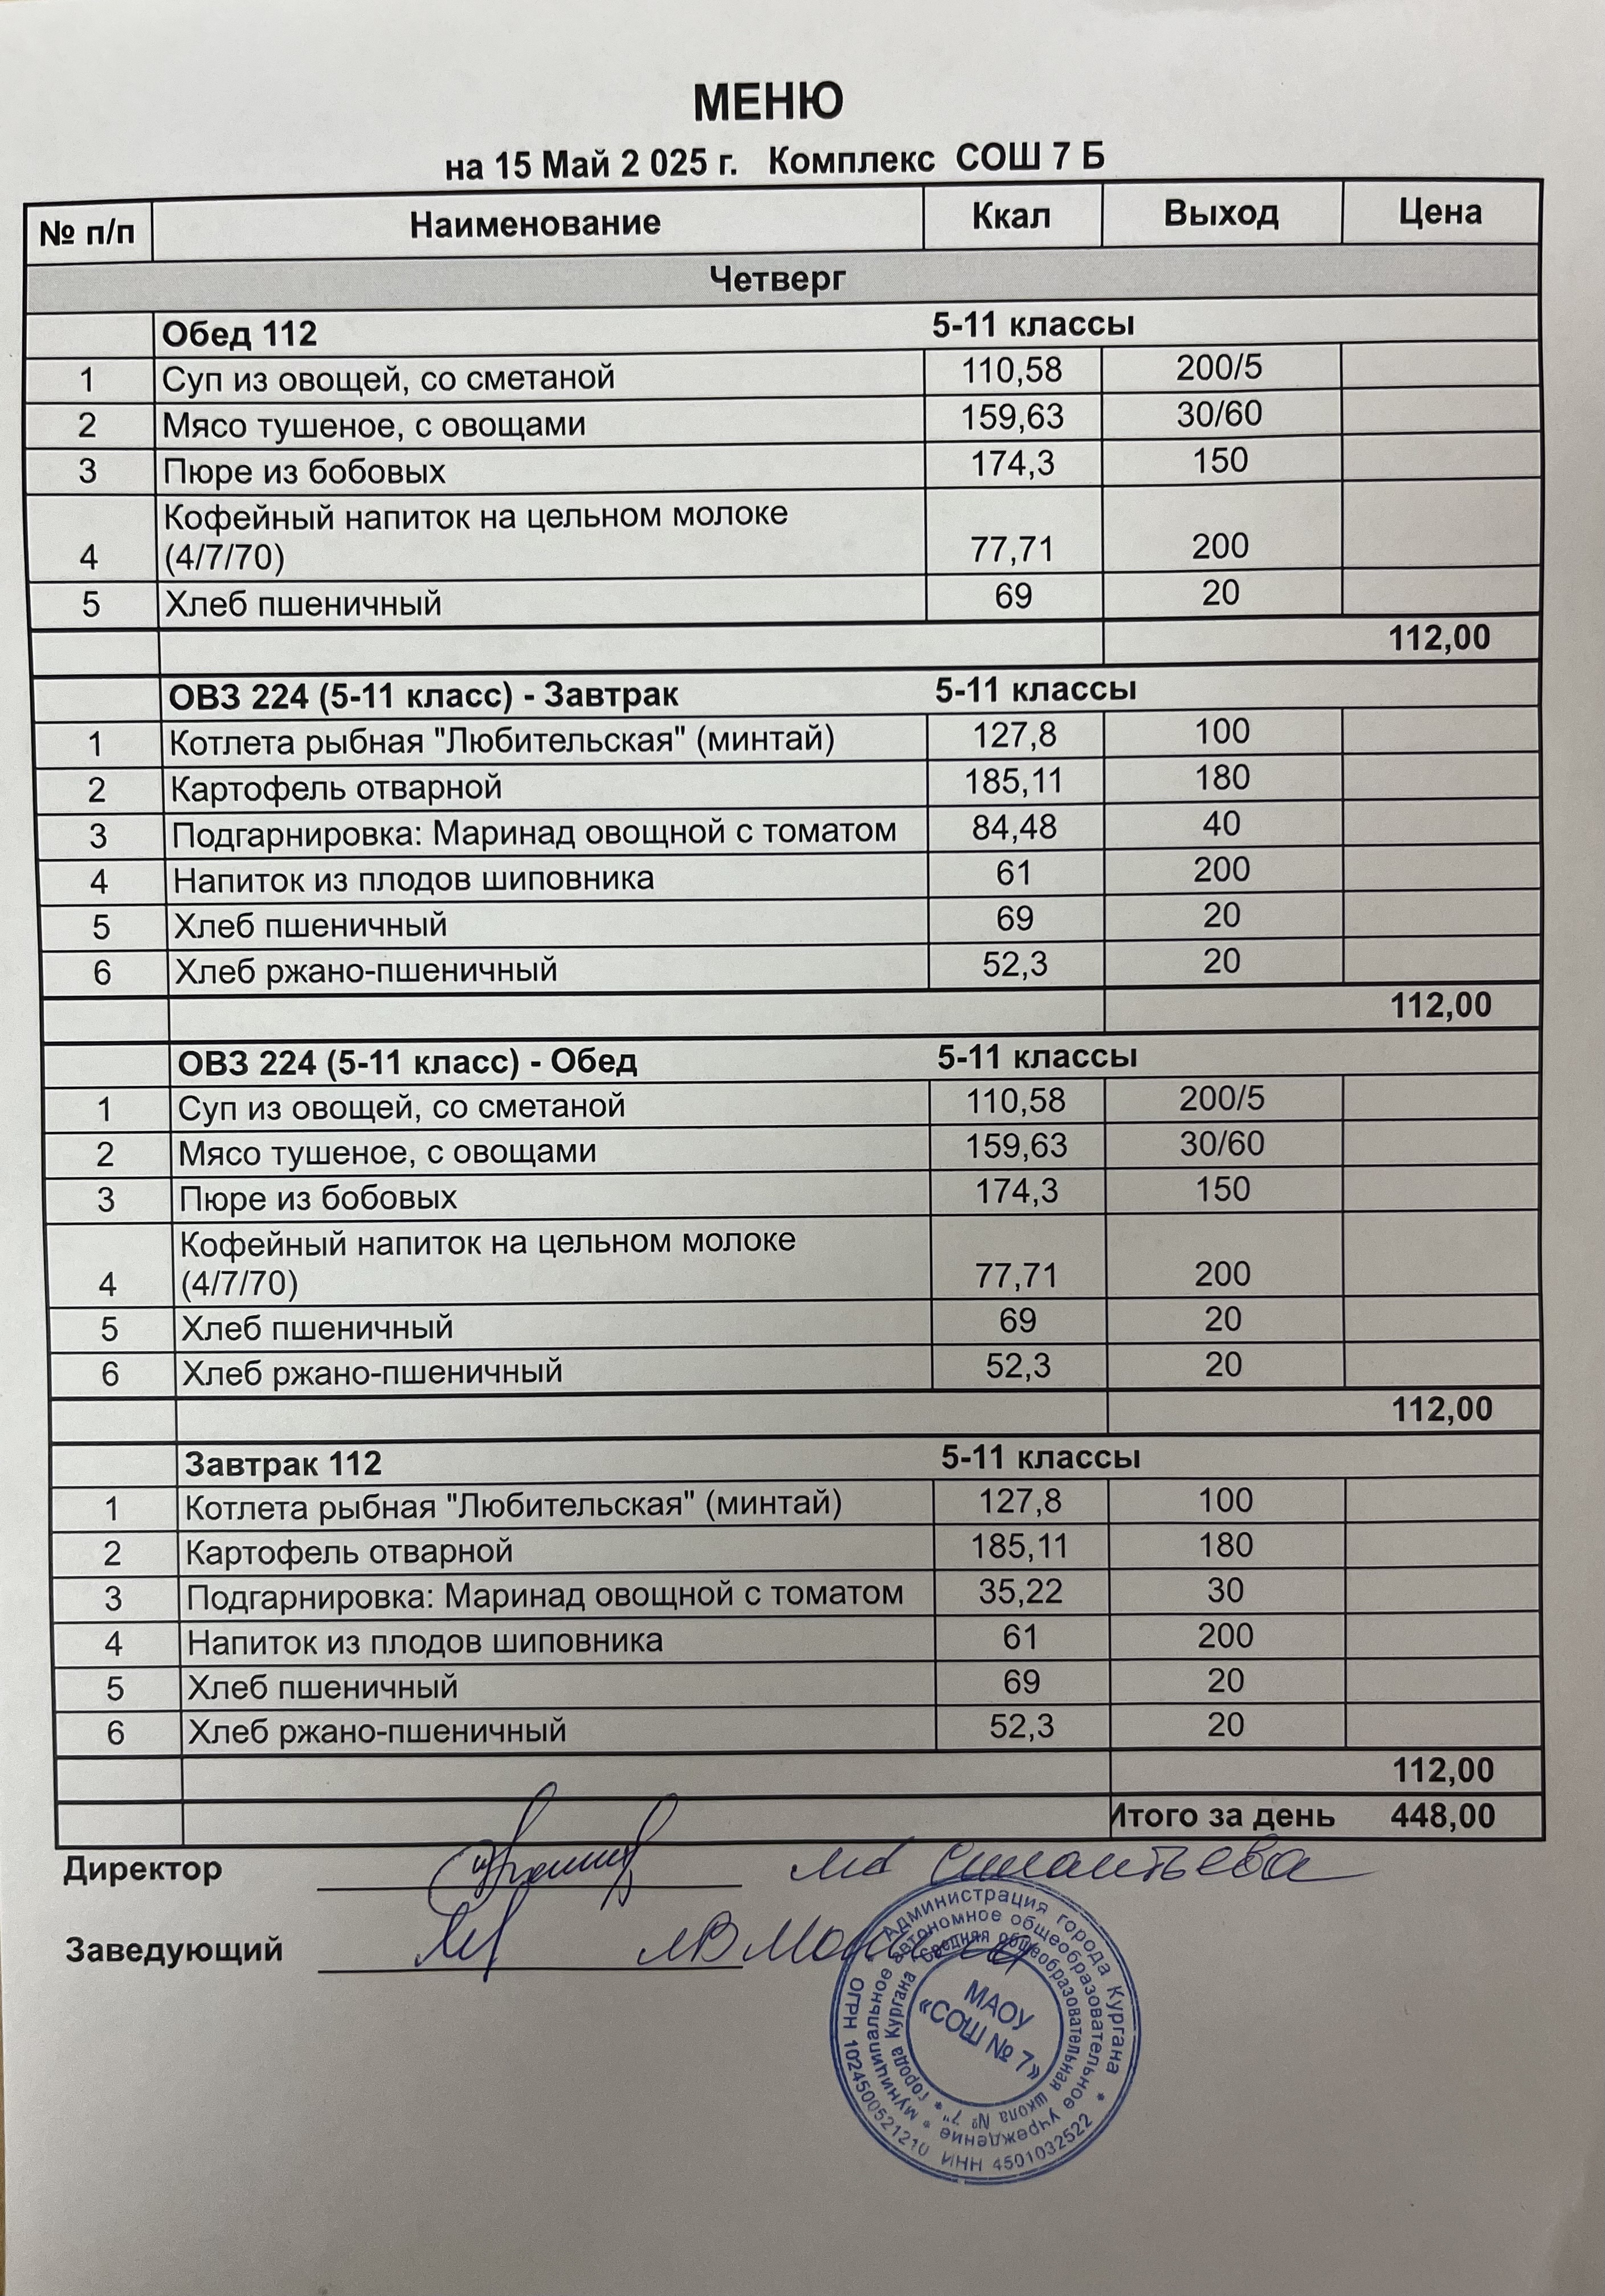 МЕНЮ
на 15 Май 2 025 г. Комплекс СОШ 7 Б
№ п/п Наименование Ккал Выход Цена
Четверг
Обед 112 5-11 классы
1 Суп из овощей, со сметаной 110,58 200/5
2 Мясо тушеное, с овощами 159,63 30/60
3 Пюре из бобовых 174,3 150
Кофейный напиток на цельном молоке
4 (4/7/70) 77,71 200
5 Хлеб пшеничный 69 20
112,00
ОВЗ 224 (5-11 класс) - Завтрак 5-11 классы
1 Котлета рыбная "Любительская" (минтай) 127,8 100
2 Картофель отварной 185,11 180
3 Подгарнировка: Маринад овощной с томатом 84,48 40
4 Напиток из плодов шиповника 61 200
5 Хлеб пшеничный 69 20
6 Хлеб ржано-пшеничный 52,3 20
112,00
ОВЗ 224 (5-11 класс) - Обед 5-11 классы
1 Суп из овощей, со сметаной 110,58 200/5
2 Мясо тушеное, с овощами 159,63 30/60
3 Пюре из бобовых 174,3 150
Кофейный напиток на цельном молоке
4 (4/7/70) 77,71 200
5 Хлеб пшеничный 69 20
6 Хлеб ржано-пшеничный 52,3 20
112,00
Завтрак 112 5-11 классы
1 Котлета рыбная "Любительская" (минтай) 127,8 100
2 Картофель отварной 185,11 180
3 Подгарнировка: Маринад овощной с томатом 35,22 30
4 Напиток из плодов шиповника 61 200
5 Хлеб пшеничный 69 20
6 Хлеб ржано-пшеничный 52,3 20
112,00
Итого за день 448,00
Директор
Заведующий
Администрация города Кургана * ОГРН 1024500521210 ИНН 4501032522 *
муниципальное автономное общеобразовательное учреждение *
города Кургана "Средняя общеобразовательная школа № 7" *
МАОУ
«СОШ № 7»